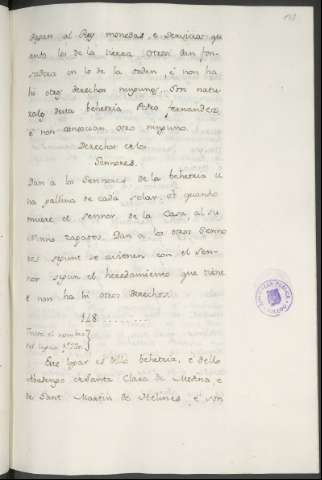 dagan al Rey monedas, e servicios qu
ando los de la tierra otrosi dan fon
sadera en lo de la orden, é non ha
hi otros derechos ningunos, son natu
rales desta behetria Pedro fernandez,
é non otro ninguno.
Derechos de los
Sennores.
Dan á los Sennores de la behetria u
na gallina de cada solar, et quando
muere el sennor de la Casa, al su
zapatos. Dan á los otros Senno
res segunt se avienen con el Sen
nor segun el heredamiento que tiene
é non ha hi otros derechos.
148
el nombre
del lugar
Este logar es dello behetria, e dello
Abadengo de Santa Clara de Medina, e
de Sant Martin de Helines, é son